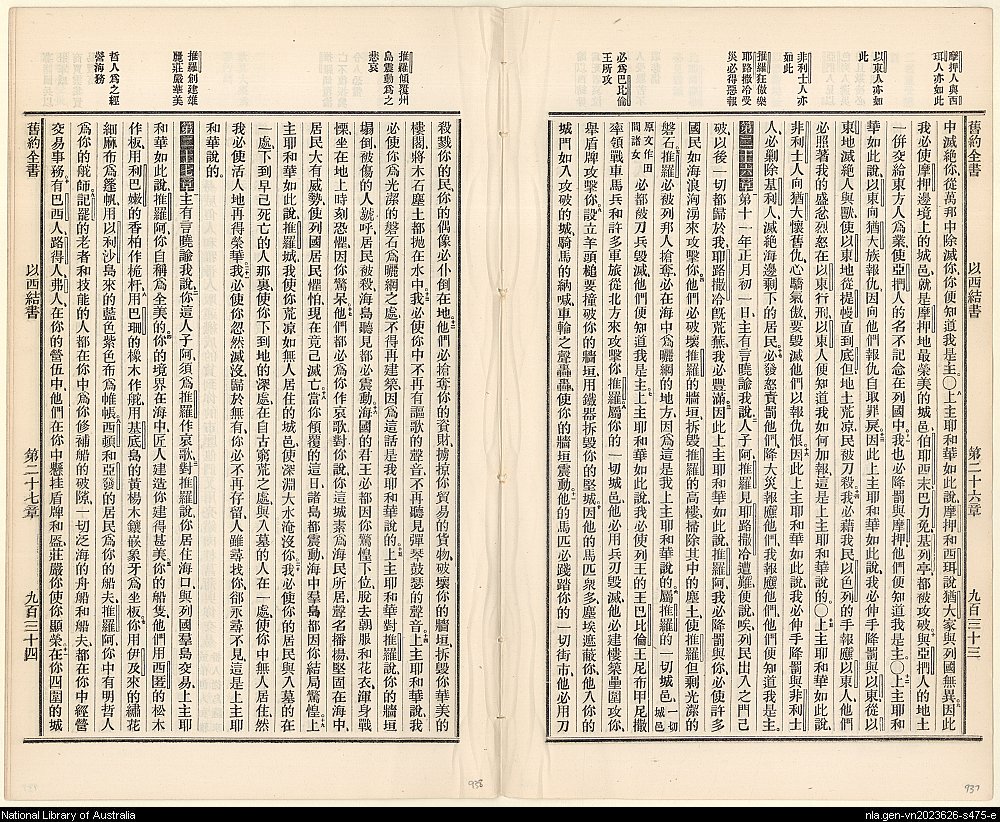 摩押人與西
珥人亦如此
以東人亦如
此
非利士人亦
如此
推羅狂傲樂
耶路撒冷受
災必得惡報
必為巴比倫
王所攻
舊約全書 以西結書 第二十六章 九百三十三
中滅絕你從萬邦中除滅你你便知道我是主○上主耶和華如此說摩押和西珥說猶大家與列國無異因此
我必使摩押邊境上的城邑就是摩押地最榮美的城邑伯耶西未巴力免基列亭都被攻破與亞捫人的地土
一併交給東方人為業使亞捫人的名不記念在列國中我也必降罰與摩押他們便知道我是主○上主耶和
華如此說以東向猶大族報仇因向他們報仇自取罪戾因此上主耶和華如此說我必伸手降罰與以東從以
東地滅絕人與獸使以東地從提幔直到底但地土荒凉民被刀殺我必藉我民以色列的手報應以東人他們
必照著我的盛忿烈怒在以東行刑以東人便知道我如何加報這是上主耶和華說的○上主耶和華如此說
非利士人向猶大懷舊仇心驕氣傲要毀滅他們以報仇恨因此上主耶和華如此說我必伸手降罰與非利士
人必剿除基利人滅絕海邊剩下的居民必發怒責罰他們降大災報應他們我報應他們他們便知道我是主
第二十六章第十一年正月初一日主有言曉諭我說人子阿推羅見耶路撒冷遭難便說唉列民出入之門已
破以後一切都歸於我耶路撒冷旣荒蕪我必豐滿因此上主耶和華如此說推羅阿我必降罰與你必使許多
國民如海浪洶湧來攻擊你他們必破壞推羅的牆垣拆毀推羅的高樓掃除其中的塵土使推羅但剩光潔的
磐石推羅必被列邦人搶奪必在海中為曬網的地方因為這是我上主耶和華說的屬推羅的一切城邑一切城邑
原文作田間諸女必都被刀兵毀滅他們便知道我是主上主耶和華如此說我必使列王的王巴比倫王尼布甲尼撒
率領戰車馬兵和許多軍旅從北方來攻擊你推羅屬你的一切城邑他必用兵刃毀滅他必建樓築壘圍攻你
舉盾牌攻擊你設立羊頭槌要撞破你的牆垣用鐵器拆毀你的堅城因他的馬匹衆多塵埃遮蔽你他入你的
城門如入攻破的城騎馬的納喊車輪之聲轟轟使你的牆垣震動他的馬匹必踐踏你的一切街市他必用刀
推羅傾覆州
島震動為之
悲哀
推羅創建雄
麗莊嚴華美
哲人為之經
營海務
殺戮你的民你的偶像必仆倒在地他們必搶奪你的資財擄掠你貿易的貨物破壞你的牆垣拆毀你華美的
樓閣將木石塵土都拋在水中我必使你中不再有謳歌的聲音不再聽見彈琴鼓瑟的聲音上主耶和華說我
必使你為光潔的磐石為曬網之處不得再建築因為這話是我耶和華說的上主耶和華對推羅說你的牆垣
塌倒被傷的人號呼居民被殺海島聽見都必震動海國的君王必都因你驚惶下位脫去朝服和花衣渾身戰
慄坐在地上時刻恐懼因你驚呆他們都必為你作哀歌對你說你這城素為海民所居聲名播揚堅固在海中
居民大有威勢使列國居民懼怕現在竟已滅亡當你傾覆的這日諸島都震動海中羣島都因你結局驚惶上
主耶和華如此說推羅城我使你荒凉如無人居住的城邑使深淵大水淹沒你我必使你的居民與入墓的在
一處下到早已死亡的人那裏使你下到地的深處在自古窮荒之處與入墓的人在一處使你中無人居住然
我必使活人地再得榮華我必使你忽然滅沒歸於無有你必不再存留人雖尋找你卻永尋不見這是上主耶
和華說的
第二十七章主有言曉諭我說你這人子阿須為推羅作哀歌對推羅說你居住海口與列國羣島交易上主耶
和華如此說推羅阿你自稱為全美的你的境界在海中匠人建造你建得甚美你的船隻他們用西匿的松木
作板用利巴嫩的香柏作桅杆用巴珊的橡木作舵用基底島的黃楊木鑲嵌象牙為坐板你用伊及來的繡花
細麻布為篷帆用以利沙島來的藍色紫色布為帷帳西頓和亞發的居民為你的船夫推羅阿你中有明哲人
為你的舵師記罷的老者和技能的人都在你中為你修補船的破隙一切泛海的舟船和船夫都在你中經營
交易事務有巴西人路得人弗人在你的營伍中他們在你中懸挂盾牌和盔莊嚴你使你顯榮在你四圍的城
舊約全書 以西結書 第二十七章 九百三十四
938
937
National Library of Australia
nla.gen-vn2023626-s475-e